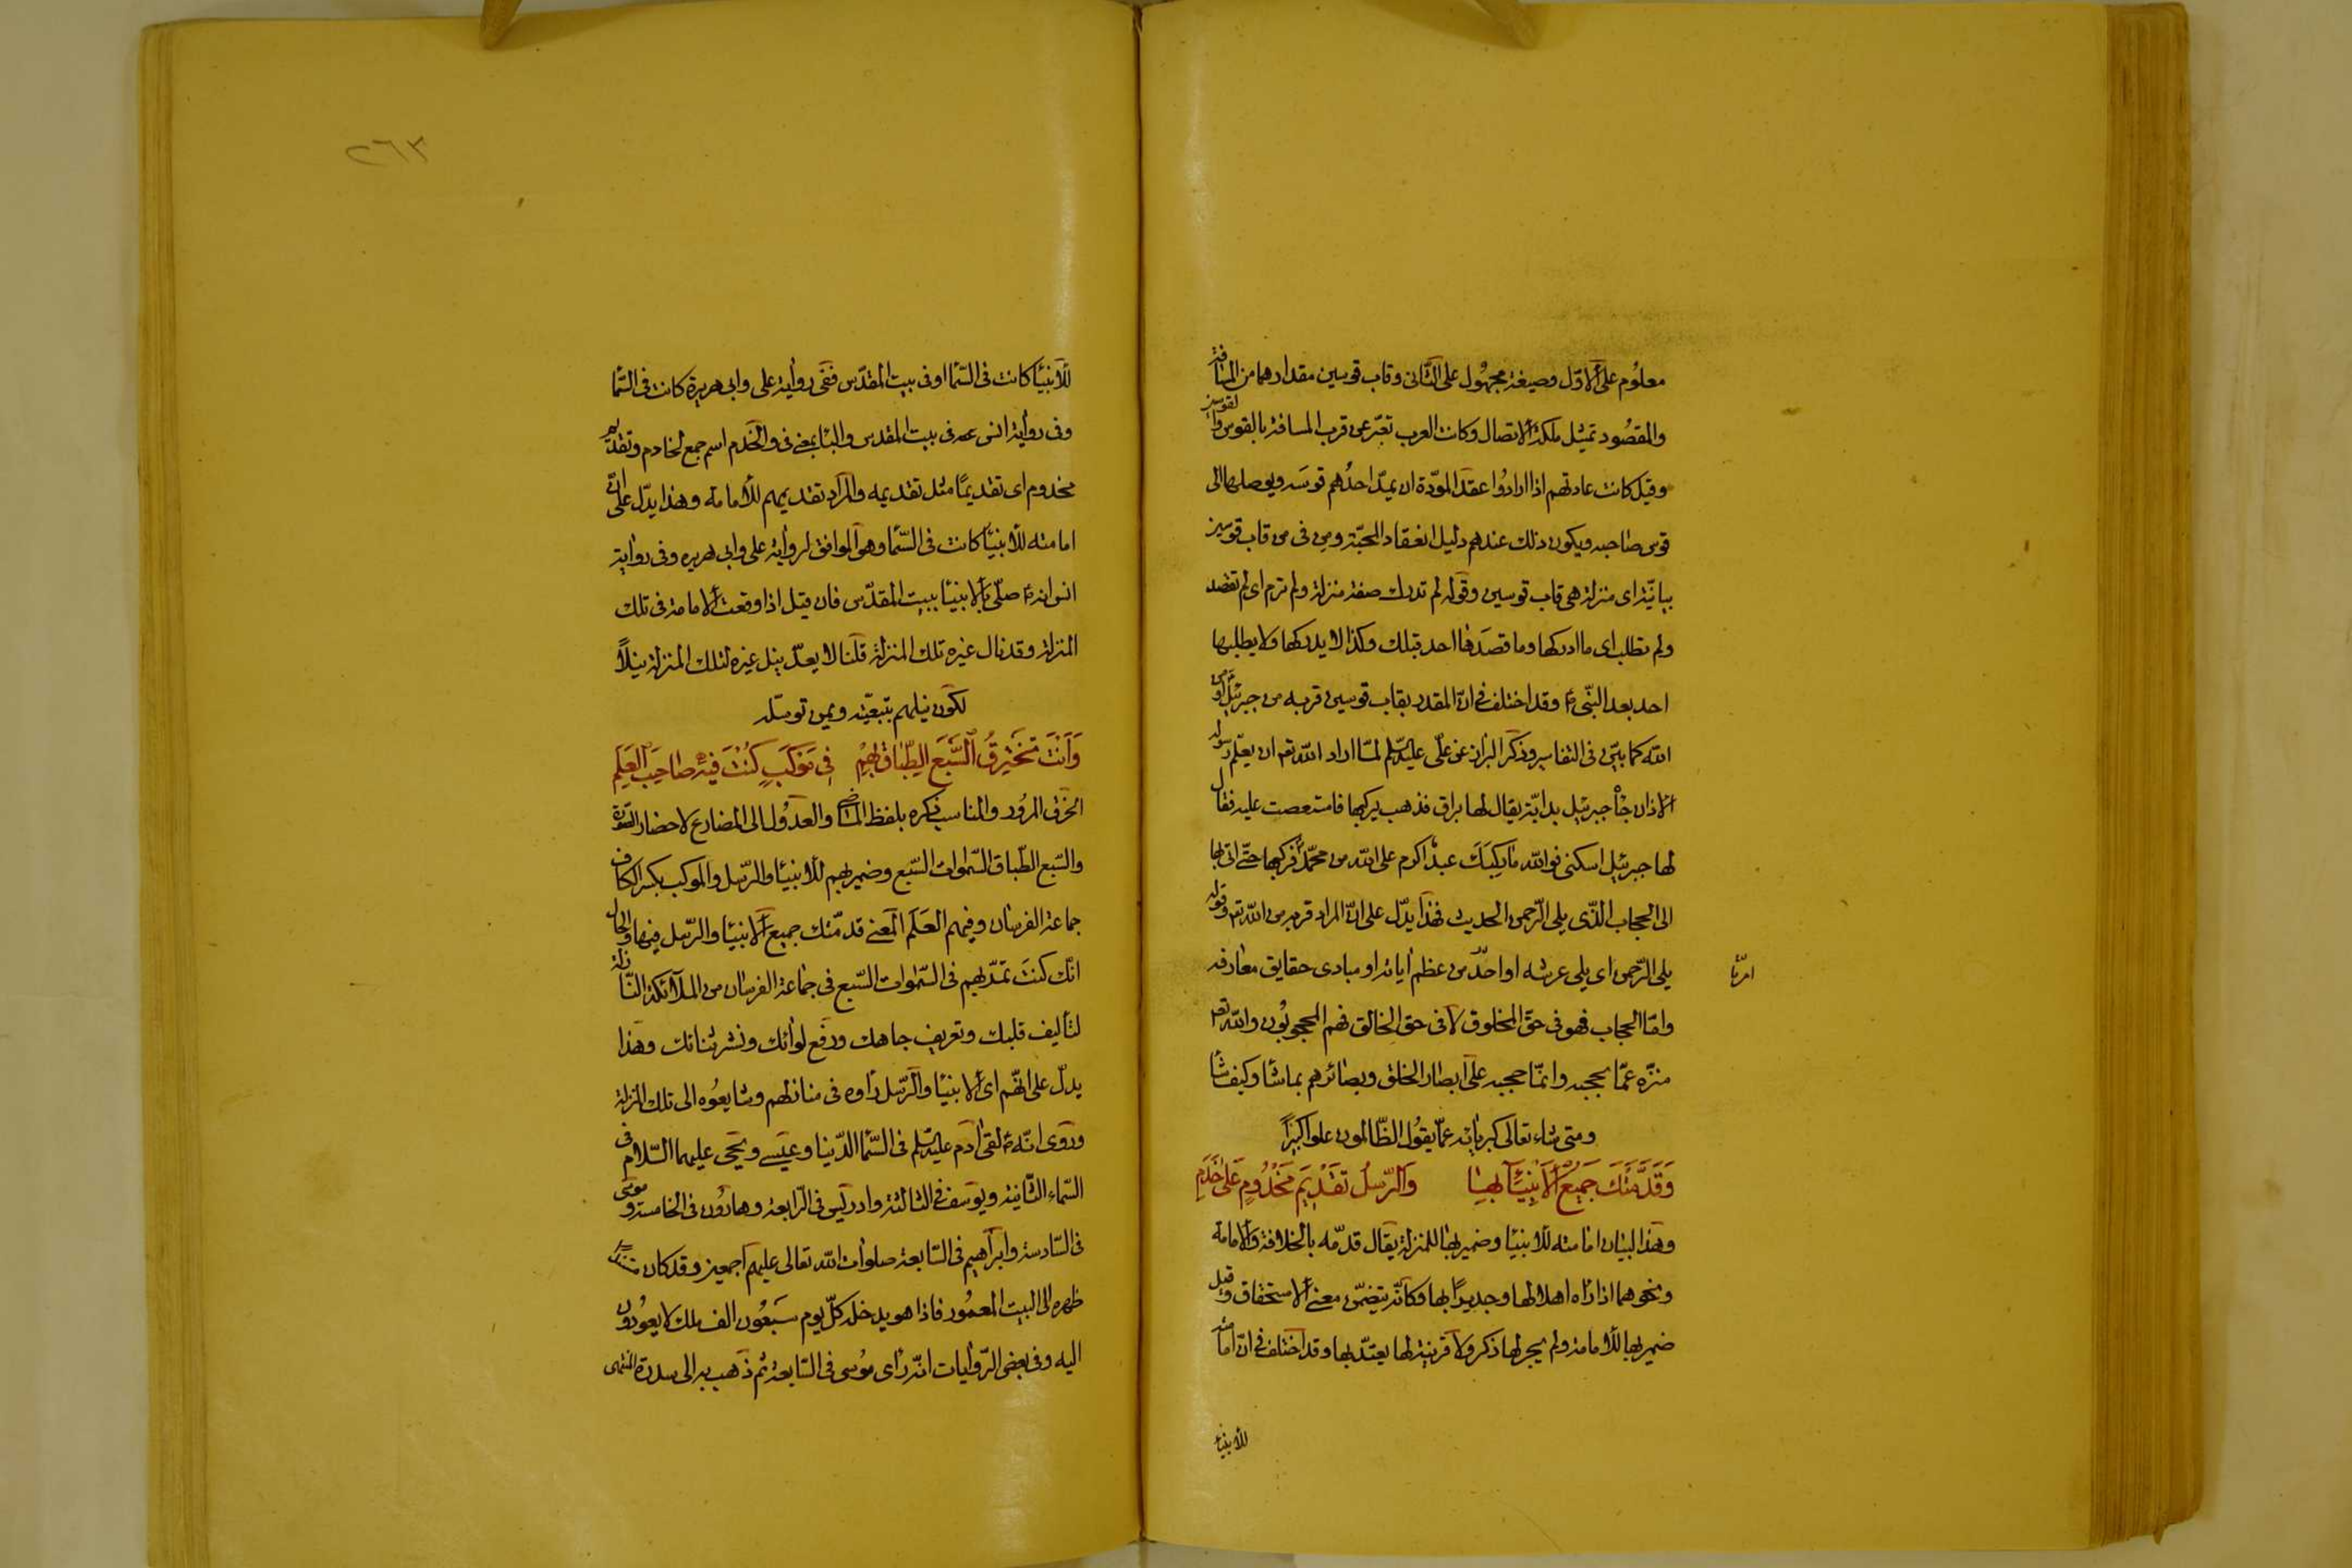 معلوم على الاوّل وصيغة مجهول على الثانى وقاب قوسين مقدارهما من المسافة
والمقصود تمثيل ملكة الاتصال وكانت العرب تعبّر عن قرب المسافة بالقوس والقوسين
وقيل كانت عادتهم اذا ارادوا عقد المودّة ان يمدّ احدهم قوسه ويوصلها الى
قوس صاحبه ويكون ذلك عندهم دليل انعقاد المحبّة ومن فى من قاب قوسين
بيانيّة اى منزلة هى قاب قوسين وقوله لم تدرك صفة منزلة ولم ترم اى لم تقصد
ولم تطلب اى ما ادركها وما قصدها احد قبلك وكذا لا يدركها ولا يطلبها
احد بعد النّبى ع وقد اختلف فى انّ المقدر بقاب قوسين قربه من جبرئيل او من
الله كما بيّن فى التفاسير وذكر البزاز عن علّى عليه السلم لمّا اراد الله تعم ان يعلّم رسوله
الاذان جاء جبرئيل بدابّة يقال لها براق فذهب يركبها فاستعصت عليه فقال
لها جبرئيل اسكنى فوالله ما ركبك عبد اكرم على الله من محمّد فركبها حتّى اتى بها
الى الحجاب الّذى يلى الرّحمن الحديث فهذا يدّل على انّ المراد قربه من الله تعم وقوله
يلى الرّحمن اى يلى عرشه او احدّ من عظم اياته او مبادى حقايق معارفه
امرّنا
وامّا الحجاب فهو فى حقّ المخلوق لا فى حق الخالق فهم المحجوبون والله تعم
منزّه عمّا يحجبه وانمّا حجبه على ابصار الخلق وبصائرهم بما شا وكيف شا
ومتى شاء تعالى كبريائه عمّا يقول الظّالمون علوا كبيرًا
وَقَدَّمَتْكَ جَمِيعُ الْأَنْبِيَآءِ بِهَا وَالرُّسُلِ تَقْدِيمَ مَخْدُومٍ عَلَى خَدَمِ
وهذا البيان امامته للانبيا وضمير بها للمنزلة يقال قدّمه بالخلافة والامامة
ونحوهما اذا راه اهلا لها وجديرًا بها وكانّه يتضمّن معنى الاستحقاق وقيل
ضمير بها للامامة ولم يجر لها ذكر ولا قرينة لها يعتدّ بها وقد اختلف فى انّ امامته
للانبياء
٢٦٣
للانبيا كانت فى السّما او فى بيت المقدّس ففى رواية على وابى هريرة كانت فى السّما
وفى رواية انس عـه فى بيت المقدس والبا بمعنى فى والخدم اسم جمع لخادم وتقديم
مخدوم اى تقديمًا مثل تقديمه والمراد تقديمهم للامامة وهذا يدّل على انّ
امامته للانبيا كانت فى السّما وهو الموافق لرواية على وابى هريره وفى رواية
انس انه ع صلّى بالانبيا ببيت المقدّس فان قيل اذا وقعت الامامة فى تلك
المنزلة وقد نال غيره تلك المنزلة قلنا لا يعدّ نيل غيره لتلك المنزلة نيلاً
لكون نيلهم بتبعيّته ويمن توسّله
وَأَنْتَ تَخْتَرِقُ السَّبْعَ الطِّبَاقَ بِهِمْ فِى مَوْكَبٍ كُنْتَ فِيْهِ صَاحِبَ الْعَلَمِ
الخرق المرور والمناسب ذكره بلفظ الماضى والعدول الى المضارع لاحضار الصّورة
والسّبع الطّباق السّموات السّبع وضمير بهم للانبيا والرّسل والموكب بكسر الكاف
جماعة الفرسان وفيهم العَلَم المعنى قدمّتك جميع الانبيا والرّسل فيها والحال
انّك كنت تمدّ بهم فى السّموات السّبع فى جماعة الفرسان من الملآئكة النّازلة
لتأليف قلبك وتعريف جاهك ورفع لوائك ونشر ثنائك وهذا
يدلّ على انّهم اى الانبيا والرّسل راوه فى منازلهم وشايعوه الى تلك المنزلة
وروى انّه ع لقى ادم عليه السلم فى السّما الدّنيا وعيسى ويحى عليهما السّلام فى
السّماء الثّانية ويوسف فى الثالثة وادريس فى الرّابعة وهارون فى الخامسة وموسى
فى السّادسة وابراهيم فى السّابعة صلوات الله تعالى عليهم اجمعين وقد كان مسندا
ظهره الى البيت المعمور فاذا هو يدخله كلّ يوم سبعون الف ملك لا يعودون
اليه وفى بعض الرّوايات انّه راى موسى فى السّابعة ثم ذهب به الى سدرة المنتهى